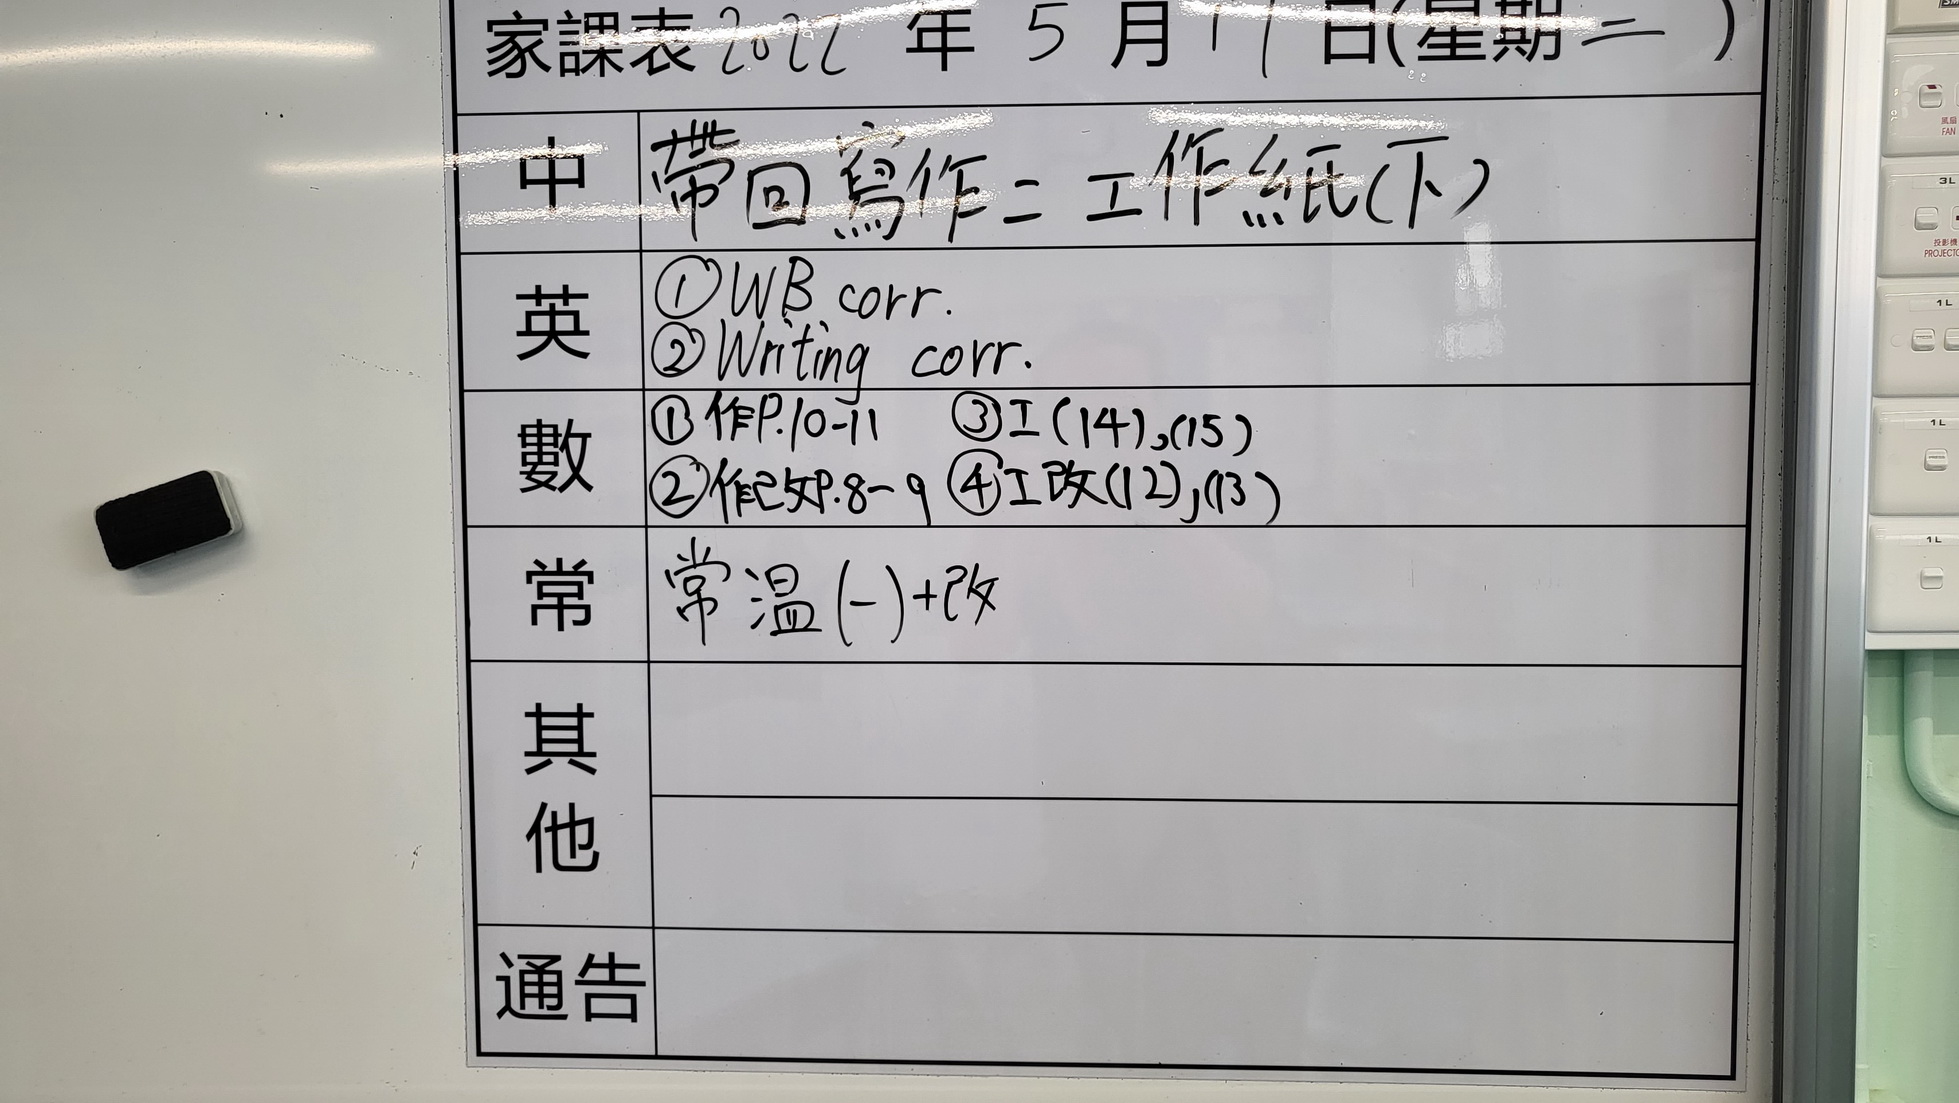 家課表 2022 年 5 月 17 日(星期二)
中 帶回寫作二工作紙(下)
英 ①WB corr.
②Writing corr.
數 ①作P.10-11 ③工(14),(15)
②作改P.8-9 ④工改(12),(13)
常 常溫(一)+改
其他
通告
風扇
FAN
3L
投影機
PROJECTO
1L
1L
1L